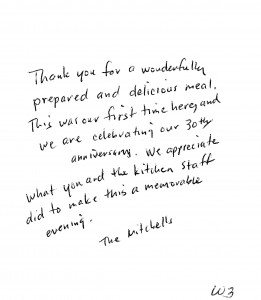 Thank you for a wonderfully
prepared and delicious meal.
This was our first time here, and
we are celebrating our 30th
anniversary. We appreciate
what you and the kitchen staff
did to make this a memorable
evening.
The Mitchells
W3